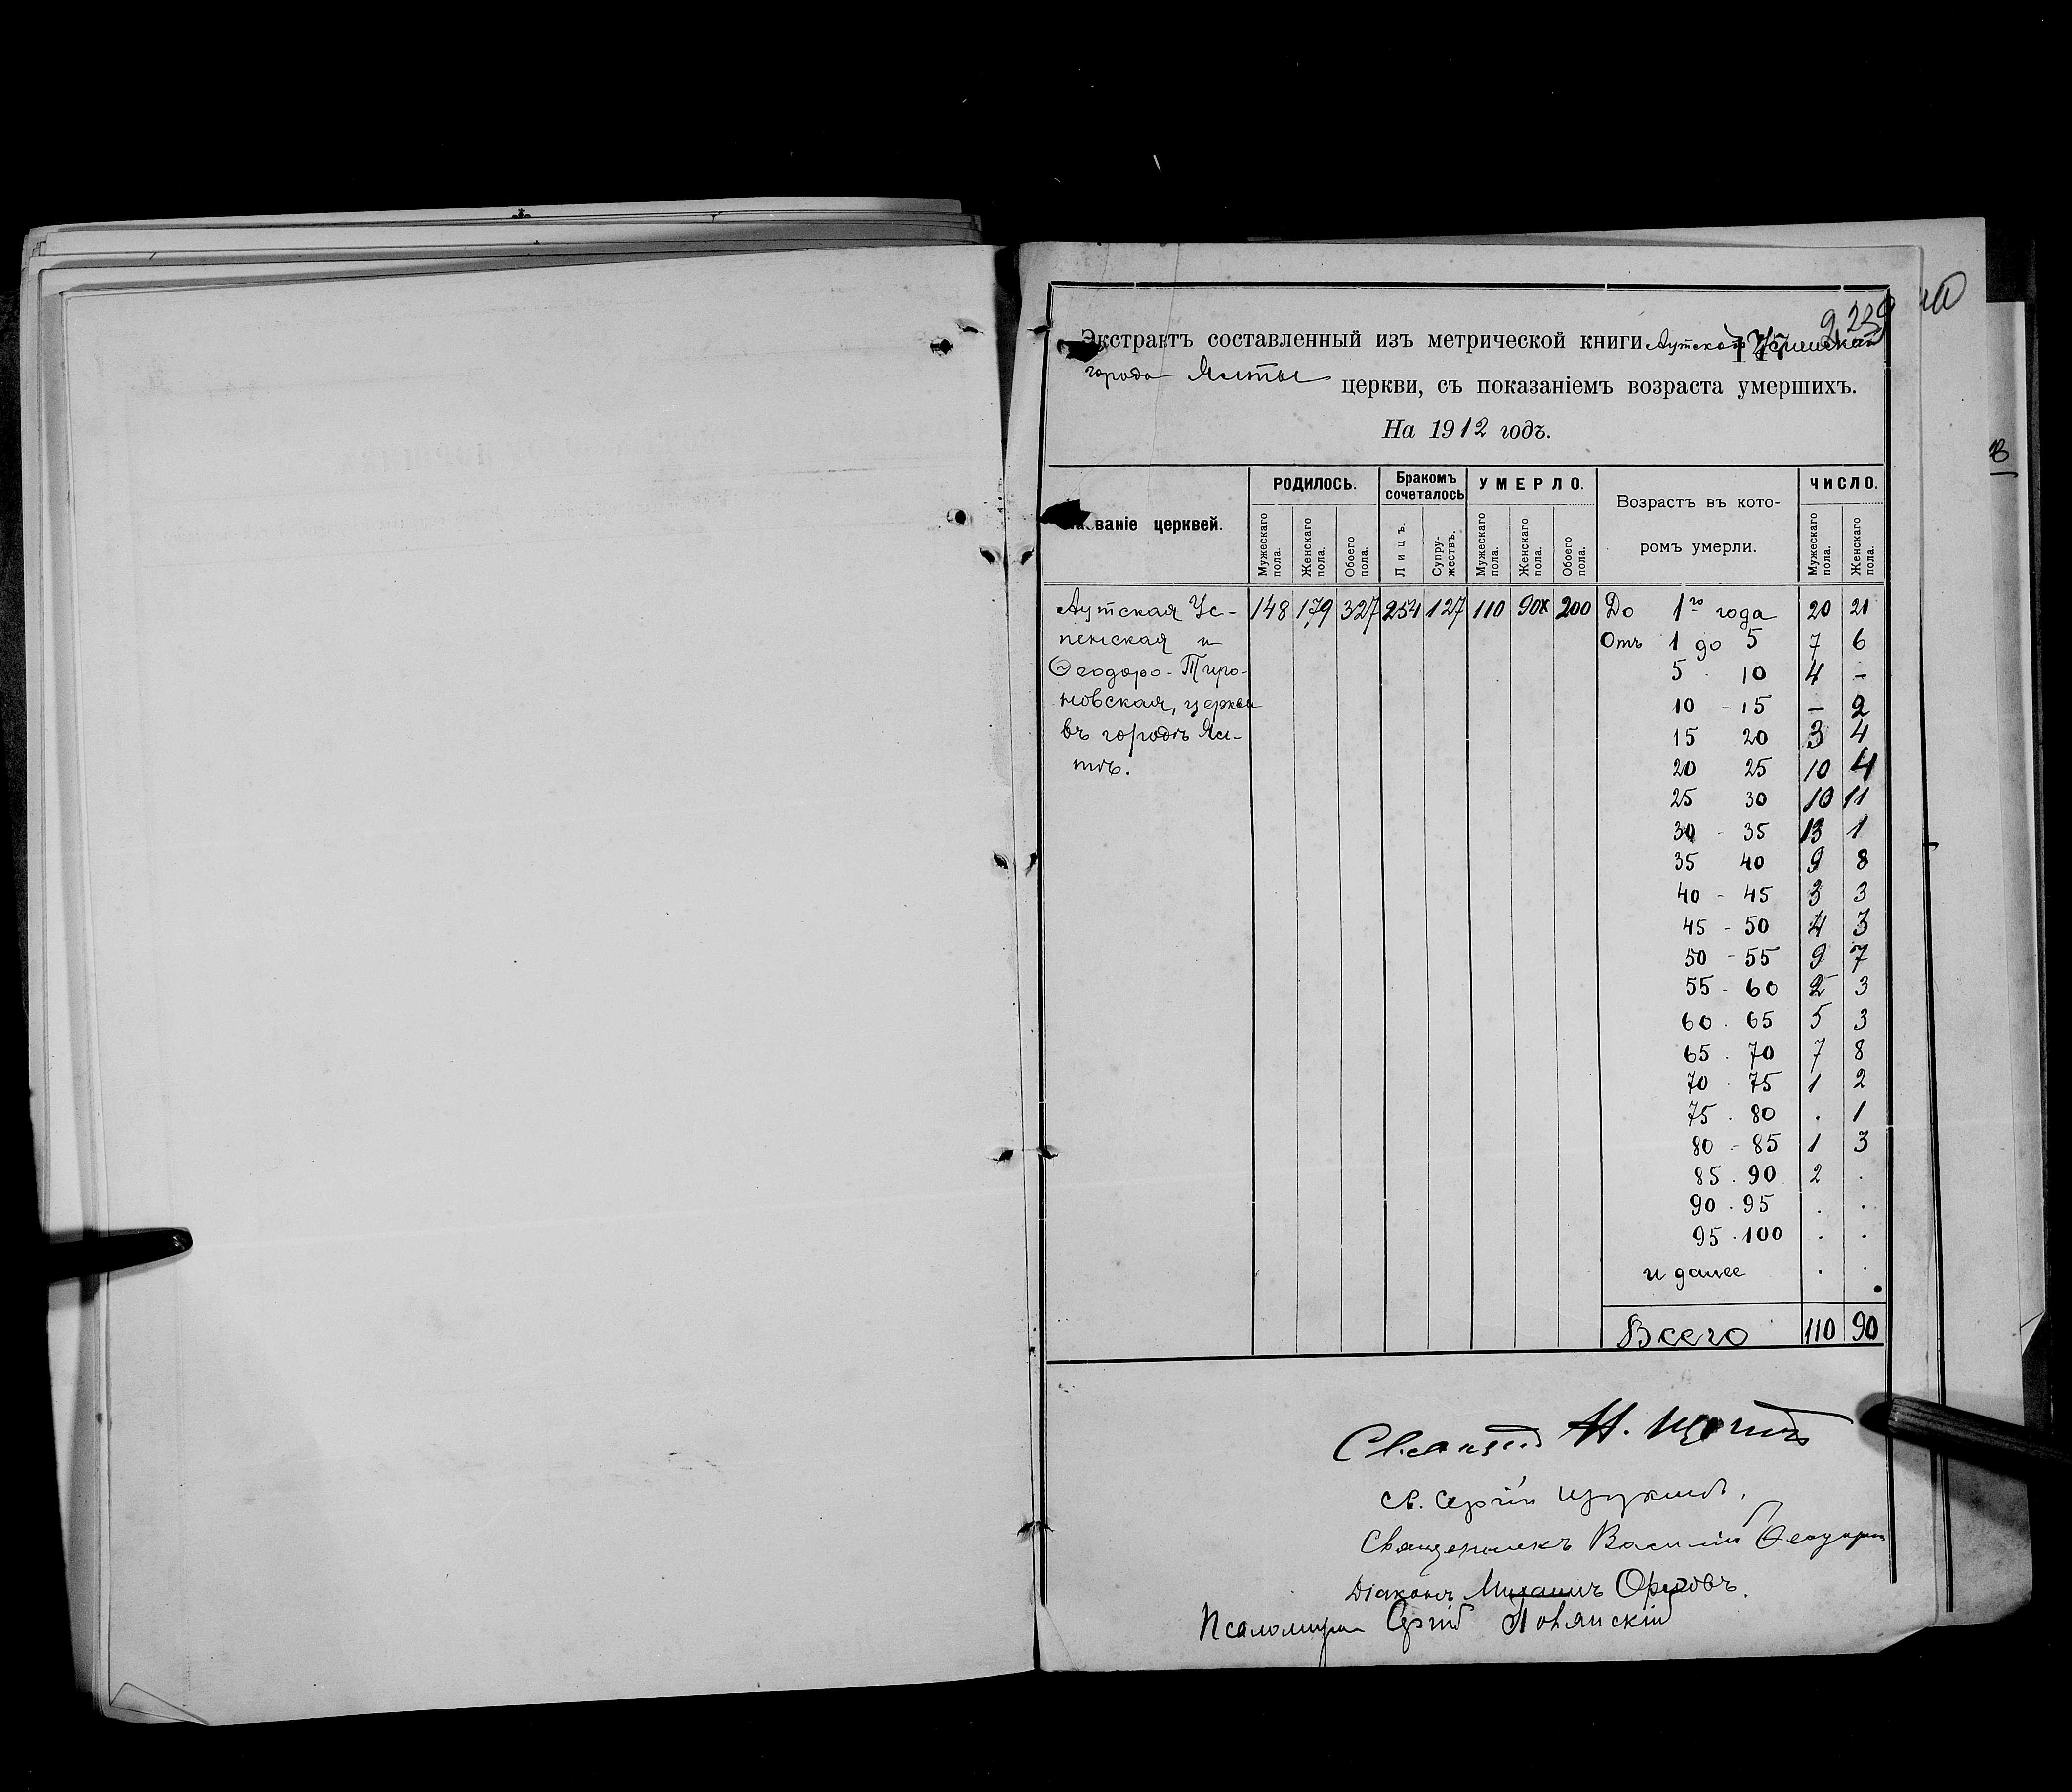 239
Экстрактъ составленный изъ метрической книги Аутской Успенской
города Ялты церкви, съ показаніемъ возраста умершихъ.
На 1912 годъ.
Названіе церквей.
РОДИЛОСЬ.
Мужескаго пола.
Женскаго пола.
Обоего пола.
Бракомъ сочеталось
Лицъ.
Супружествъ.
УМЕРЛО.
Мужескаго пола.
Женскаго пола.
Обоего пола.
Возрастъ въ кото-
ромъ умерли.
ЧИСЛО.
Мужескаго пола.
Женскаго пола.
Аутская Ус- 148 179 327 254 127 110 90 200 До 1го года 20 21
пенская и Отъ 1 до 5 7 6
Ѳеодоро-Тиро- 5 . 10 4 -
новская, церкви 10 - 15 - 2
въ городѣ Ял- 15 20 3 4
тѣ. 20 25 10 4
25 30 10 11
30 - 35 13 1
35 40 9 8
40 - 45 3 3
45 - 50 4 3
50 - 55 9 7
55 - 60 2 3
60 . 65 5 3
65 . 70 7 8
70 . 75 1 2
75 . 80 . 1
80 - 85 1 3
85 . 90 2 .
90 . 95 . .
95 . 100 . .
и далее . .
Всего 110 90
Св. Сергій Щукинъ,
Священникъ Василій
Діаконъ Михаилъ Орловъ.
Псаломщ Сергій